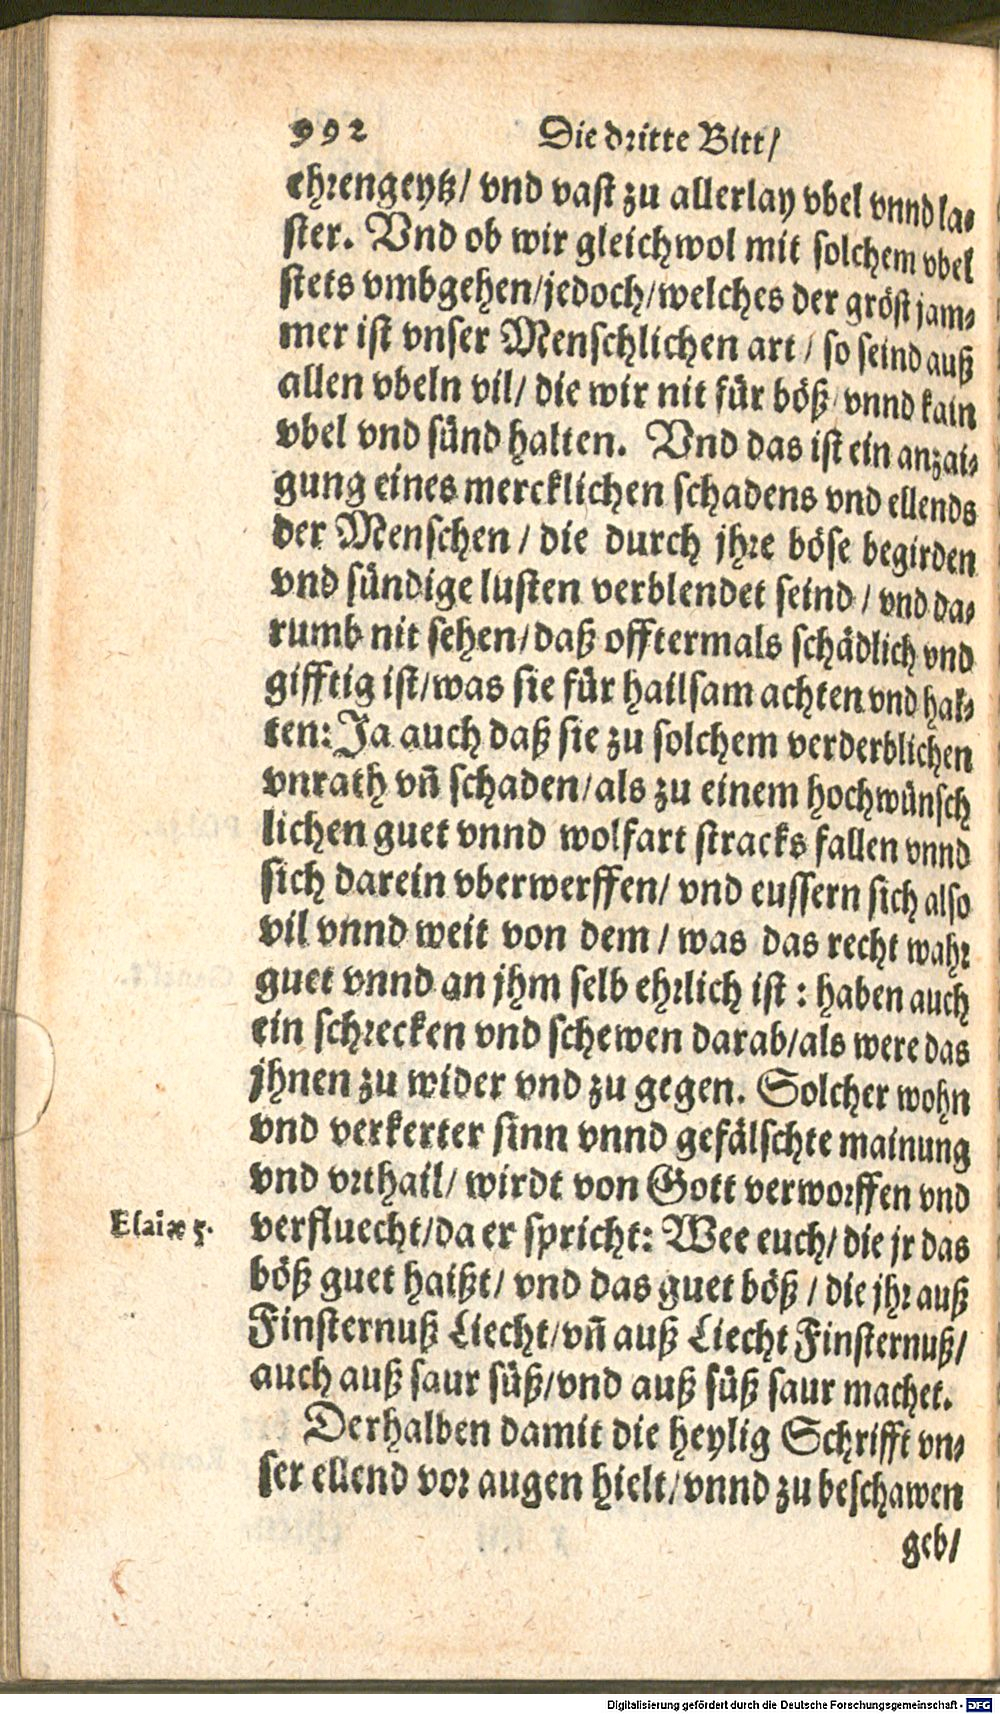 992 Die dritte Bitt/
ehrengeytz/ vnd vast zu allerlay vbel vnnd la-
ster. Vnd ob wir gleichwol mit solchem vbel
stets vmbgehen/jedoch/welches der gröst jam-
mer ist vnser Menschlichen art/ so seind auß
allen vbeln vil/ die wir nit für böß/ vnnd kain
vbel vnd sünd halten. Vnd das ist ein anzai-
gung eines mercklichen schadens vnd ellends
der Menschen/ die durch jhre böse begirden
vnd sündige lusten verblendet seind/ vnd da-
rumb nit sehen/daß offtermals schädlich vnd
gifftig ist/was sie für hailsam achten vnd hal-
ten: Ja auch daß sie zu solchem verderblichen
vnrath vñ schaden/als zu einem hochwünsch
lichen guet vnnd wolfart stracks fallen vnnd
sich darein vberwerffen/ vnd eussern sich also
vil vnnd weit von dem/ was das recht wahr
guet vnnd an jhm selb ehrlich ist: haben auch
ein schrecken vnd schewen darab/als were das
jhnen zu wider vnd zu gegen. Solcher wohn
vnd verkerter sinn vnnd gefälschte mainung
vnd vrthail/ wirdt von Gott verworffen vnd
Esaiæ 5. verfluecht/da er spricht: Wee euch/ die jr das
böß guet haißt/ vnd das guet böß/ die jhr auß
Finsternuß Liecht/vñ auß Liecht Finsternuß/
auch auß saur süß/vnd auß süß saur machet.
Derhalben damit die heylig Schrifft vn-
ser ellend vor augen hielt/vnnd zu beschawen
geb/
Digitalisierung gefördert durch die Deutsche Forschungsgemeinschaft - DFG